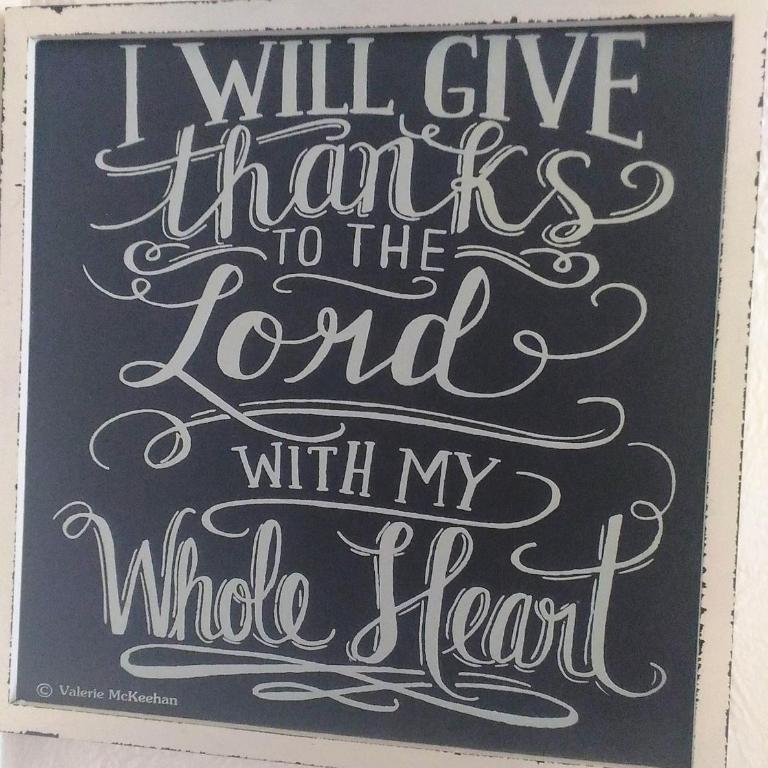 I WILL GIVE
thanks
TO THE
Lord
WITH MY
Whole Heart
© Valerie McKeehan